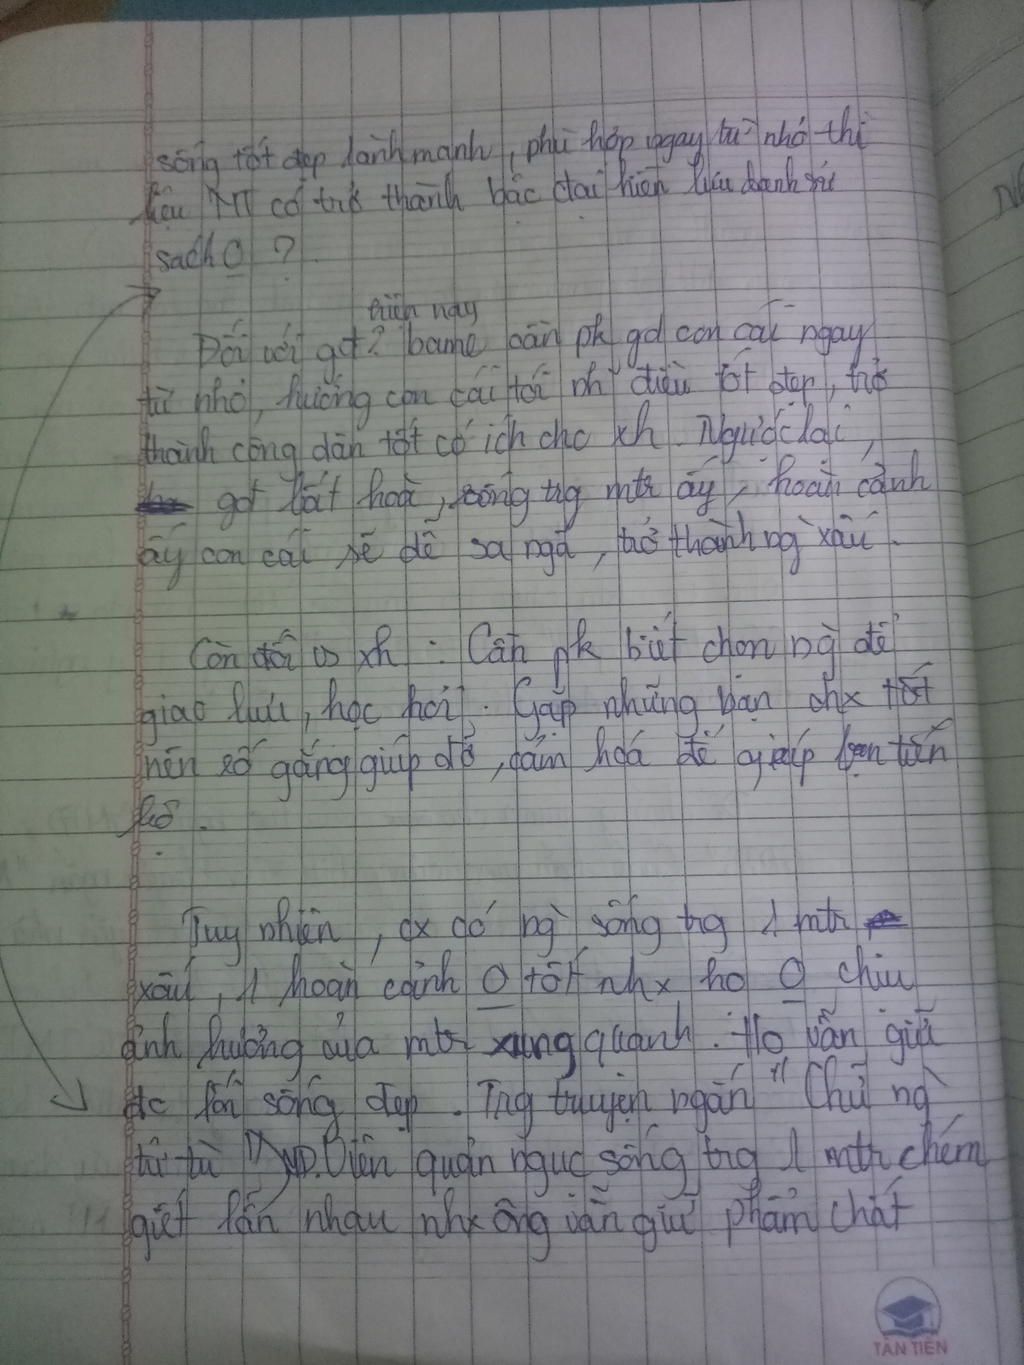 sống tốt đẹp lành mạnh, phù hợp ngay từ nhỏ thì
liệu NT có trở thành bậc đại hiền lưu danh sử
sách O ?
hiện nay
Đối với gđ? bame cần pk gd con cái ngay
từ nhỏ, hướng con cái tới nh~ điều tốt đẹp, trở
thành công dân tốt có ích cho xh. Ngược lại,
gđ bất hoà, sống trg mtr ấy, hoàn cảnh
ấy con cái sẽ dễ sa ngã, trở thành ng xấu.
Còn đối vs xh : Cần pk biết chọn ng` để
giao lưu, học hỏi. Gặp những bạn chx tốt
nên cố gắng giúp đỡ, cảm hoá để giúp bạn tiến
bộ.
Tuy nhiên, cx có ng` sống trg 1 mtr
xấu, 1 hoàn cảnh O tốt nhx họ O chịu
ảnh hưởng của mtr xung quanh. Họ vẫn giữ
đc lối sống đẹp. Trg truyện ngắn "Chữ ng`
tử tù" Viên quản ngục sống trg 1 mtr chém
giết lẫn nhau nhx ông vẫn giữ phẩm chất
TÂN TIẾN